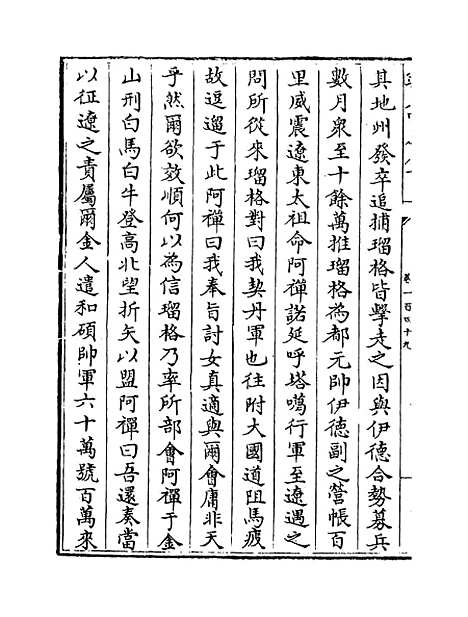 卷一百四十九
其地州發卒追捕瑠格皆擊走之因與伊德合勢募兵
數月衆至十餘萬推瑠格為都元帥伊德副之營帳百
里威震遼東太祖命阿禪諾延呼塔噶行軍至遼遇之
問所從來瑠格對曰我契丹軍也往附大國道阻馬疲
故逗遛于此阿禪曰我奉旨討女真適與爾會庸非天
乎然爾欲效順何以為信瑠格乃率所部會阿禪于金
山刑白馬白牛登高北望折矢以盟阿禪曰吾還奏當
以征遼之責屬爾金人遣和碩帥軍六十萬號百萬來